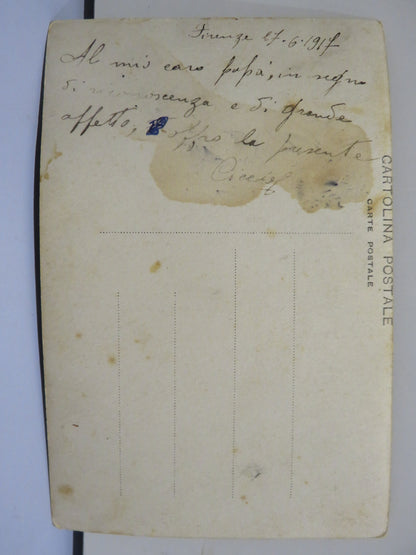 Firenze 27-6-1917
Al mio caro papá, in segno
di riconoscenza e di grande
affetto, offro la presente
CARTOLINA POSTALE
CARTE POSTALE